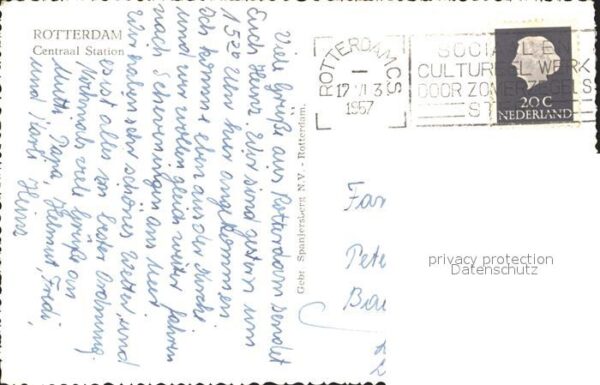 ROTTERDAM
Centraal Station
Viele Grüße aus Rotterdam sendet
Euch Heinz. Wir sind gestern um
15 20 Uhr hier angekommen
Ich komme eben aus der Kirche
und wir wollen gleich weiter fahren
nach Scheveningen ans Meer
Wir haben sehr schönes Wetter und
es ist alles in bester Ordnung.
Nochmals viele Grüße an
Mutti, Papa, Helmut, Fredi,
und Heinz
Gebr. Spanjersberg N.V. - Rotterdam.
ROTTERDAM CS
17 VI 3
1957
SOCIAL EN
CULTUREEL WERK
DOOR ZOMERZEGELS
20 C
NEDERLAND
Fam
Pete
Ba
privacy protection
Datenschutz